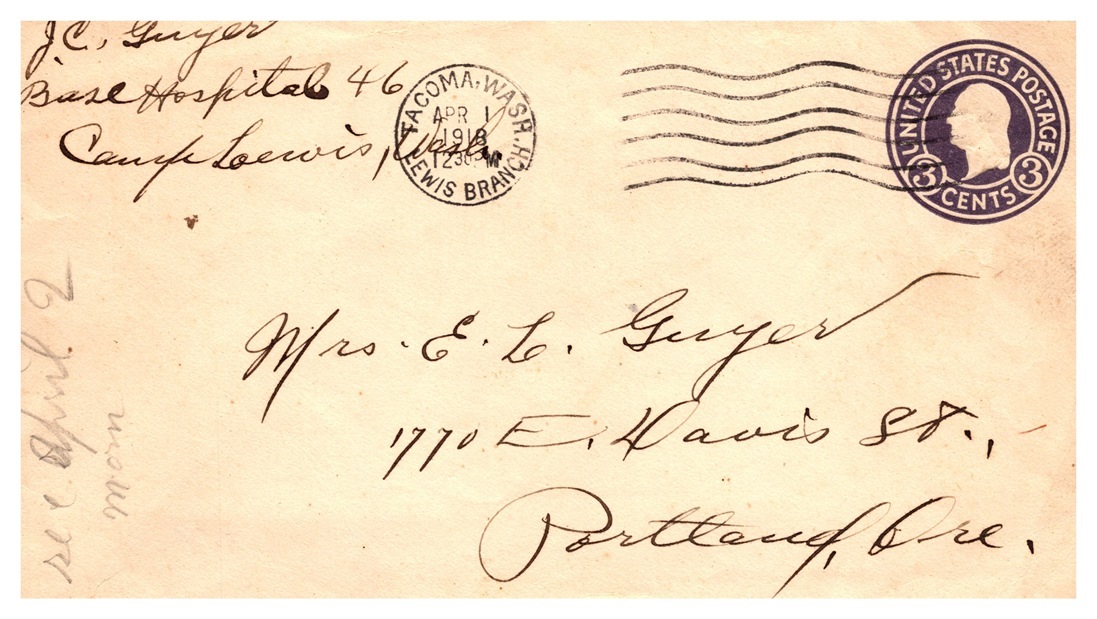 J.C. Guyer
Base Hospital 46
Camp Lewis, Wash
TACOMA, WASH.
APR 1
1918
12 30 M
LEWIS BRANCH
UNITED STATES POSTAGE
3 CENTS 3
Mrs. E. L. Guyer
1770 E. Davis St.,
Portland, Ore.
rec April 2
noon